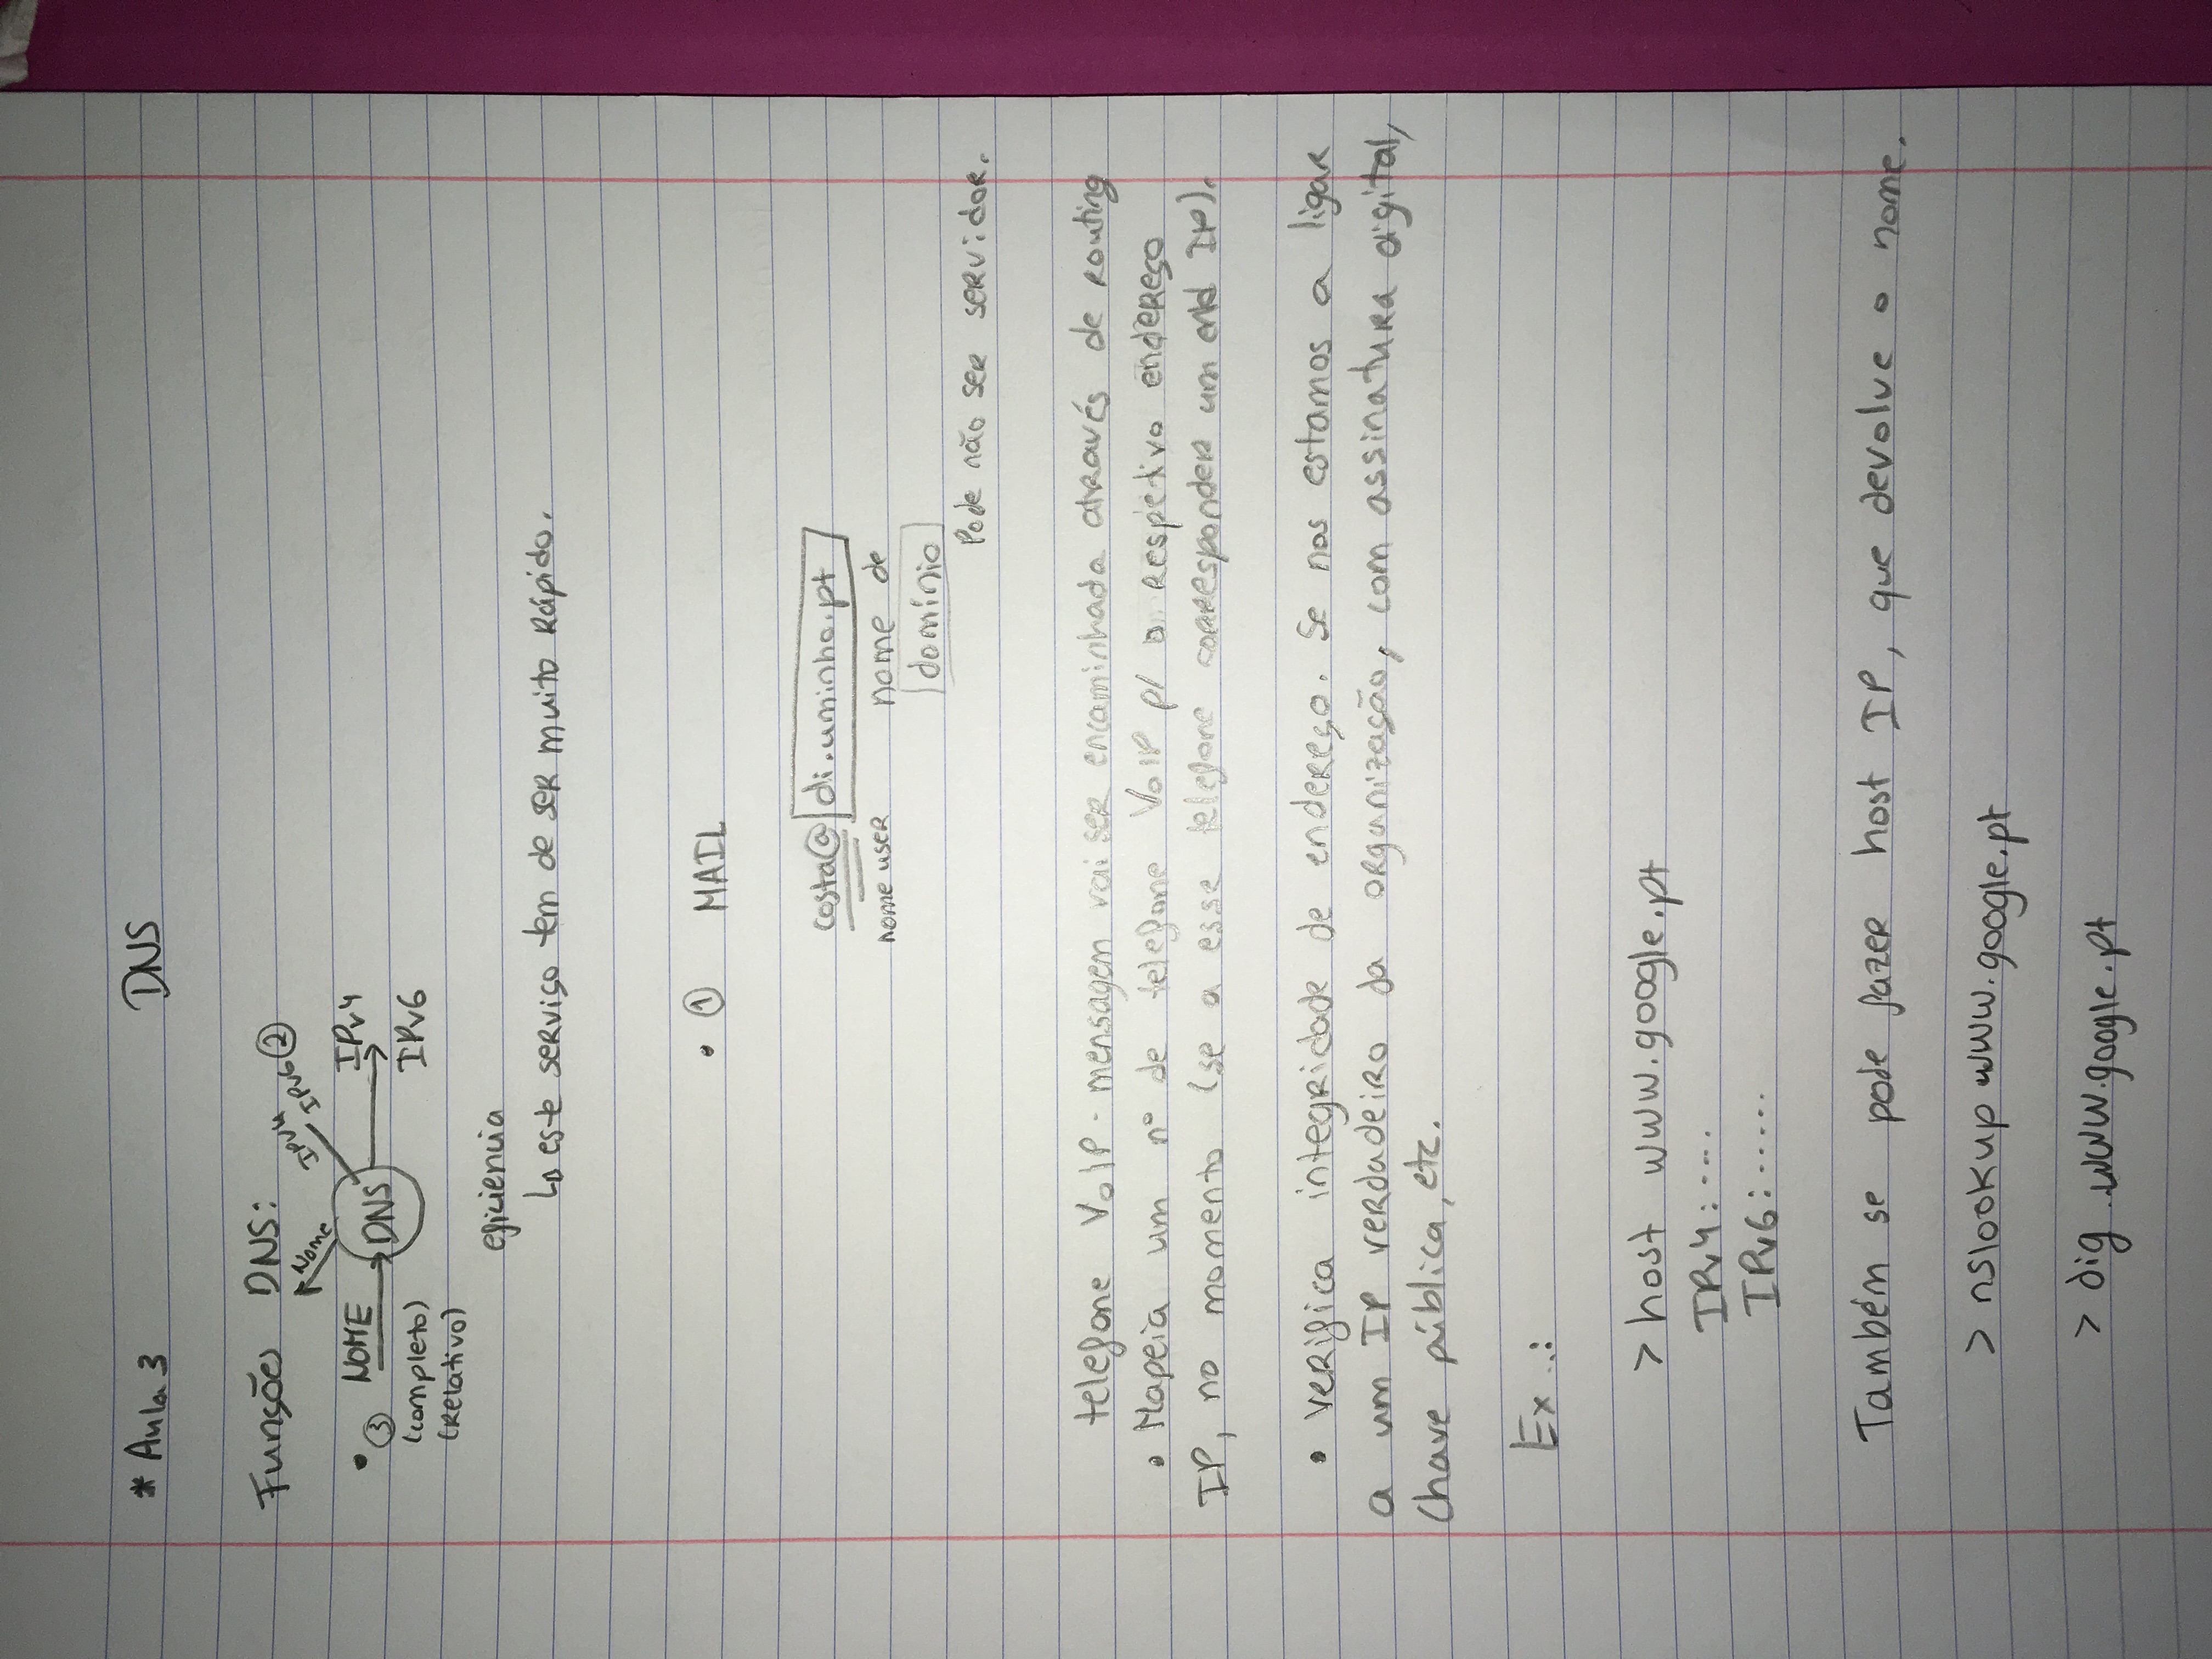 * Aula 3 DNS
Funções DNS:
Nome IPv4 IPv6 ②
• ③ NOME DNS IPv4
IPv6
(completo)
(Relativo)
eficiencia
↳ este serviço tem de ser muito Rápido.
• ① MAIL
costa@ di.uminho.pt
nome user nome de
domínio
Pode não ser servidor.
telefone VoIP - mensagem vai ser encaminhada através de Routing
• Mapeia um nº de telefone VoIP p/ o respetivo endereço
IP, no momento (se a esse telefone corresponder um end IP).
• Verifica integridade de endereço. Se nos estamos a ligar
a um IP verdadeiro da organização, com assinatura digital,
Chave pública, etc.
Ex..:
> host www.google.pt
IPv4: ....
IPv6: .....
Também se pode fazer host IP, que devolve o nome.
> nslookup www.google.pt
> dig www.google.pt